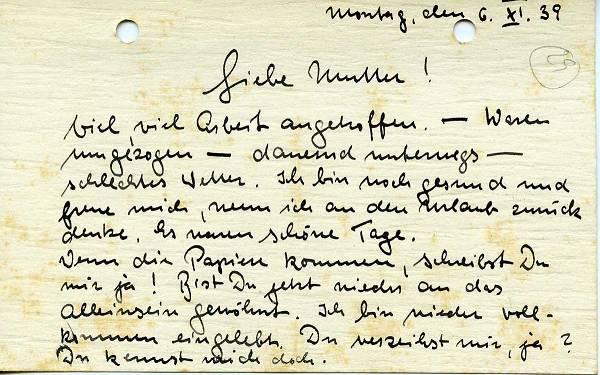 Montag, den 6. XI. 39
50
Liebe Mutter!
Viel, viel Arbeit angetroffen. — Waren
umgezogen — dauernd unterwegs —
schlechtes Wetter. Ich bin noch gesund und
freue mich, wenn ich an den Urlaub zurück
denke. Es waren schöne Tage.
Wenn die Papiere kommen, schreibst Du
mir ja! Bist Du jetzt wieder an das
Alleinsein gewöhnt. Ich bin wieder voll-
kommen eingelebt. Du verzeihst mir, ja?
Du kennst mich doch.